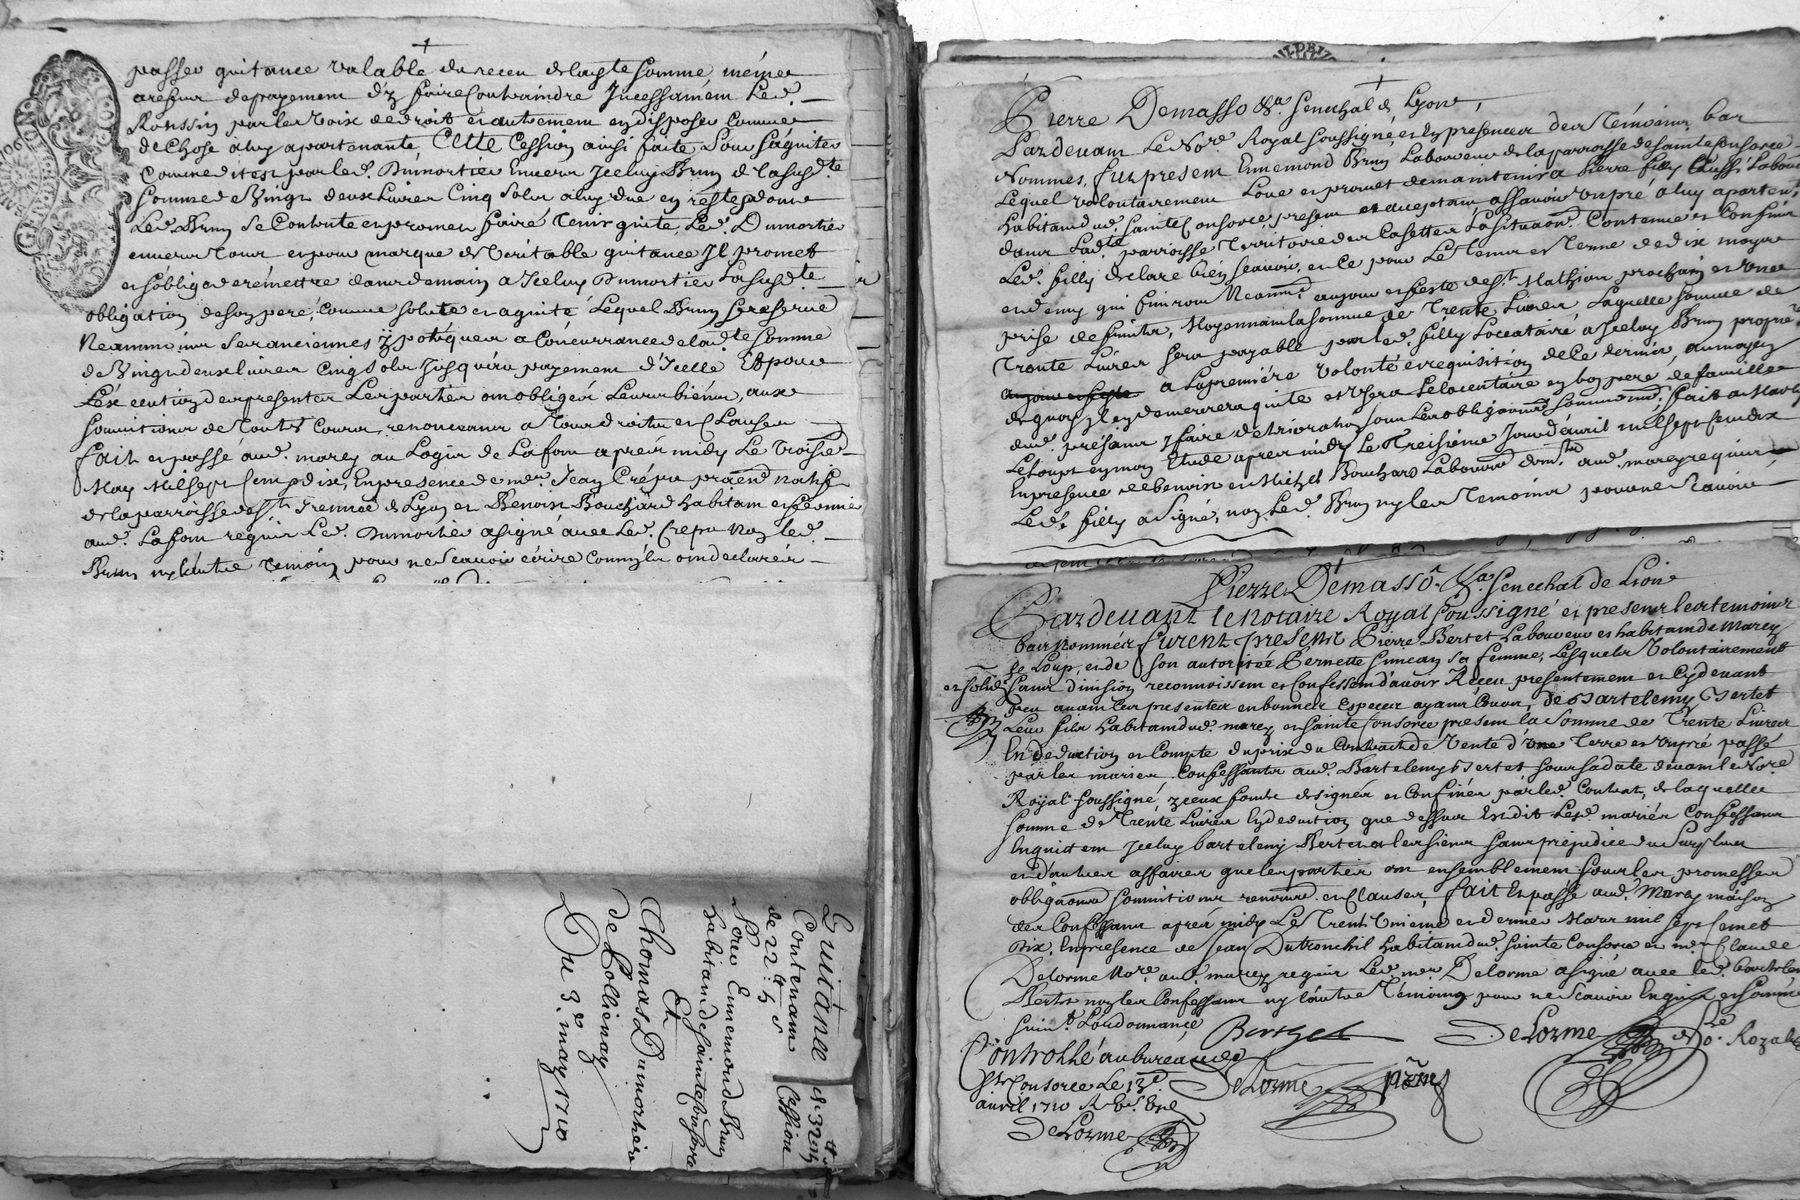 passer quitance valable du receu de lad.te somme, meme
a reffus de payement d'y faire Contraindre Incessâment Led.
Roussin par les voix de droit et autrement en disposer Comme
de Chose a luy apartenante, Cette Cession ainsi faite, pour s'aquiter
Comme dit est par led. Dumortier Envers Iceluy Brun de la susd.te
somme de Vingt deux Livres Cinq solz a luy due en reste, dont
Led. Brun se Contente et promet faire tenir quite Led. Dumortier
envers tous et pour marque de Veritable quitance Il promet
et s'oblige de remettre dans demain a Iceluy Dumortier La susd.te
obligation de son pere, Comme solute et aquité Lequel Brun se reserve
Neanmoins ses anciennes ypoteques a Concurrance de lad.te somme
de Vingt deux livres Cinq solz Jusqu'au payement d'Icelle Et pour
L'éxécution des presentes Les parties ont obligés Leurs biens, aux
soumissions de Toutes Cours, renonceant a Tous droits et Clauses
fait et passé aud. marcy au Logis de Lafont apres midy Le Troisie.
May Mil sept Cent dix, En presence de me. Jean Crépu
de la parroisse de St. de Lyon et Benoist Bouchard habitant
aud. Lafont requis Led. Dumortier a signé avec Led. Crepu Non led.
Brun ny l'autre Temoin pour ne scavoir écrire Comme ils ont declarés
Quitance
Contenant
de 22 5 s
Pour Enemond Brun
habitant de Sainte Consorce
Et
Thomas Dumortier
de Pollienay
Du 3.e may 1710
Cession
Pierre Demasso &a. Senechal de Lyon,
Pardevant Le No.re Royal soussigné, et En presence des Témoins bas
Nommés, fut present Ennemond Brun Laboureur de la parroisse de Sainte Consorce
Lequel volontairement Loue et promet de maintenir a Pierre filly aussi Labour
habitant aud. Sainte Consorce, present et acceptant assavoir un pré a luy aparten.
dans Lad.te parroisse Territoire des Casettes La situaon. Contenue et Confins
Led. filly declare bien scavoir, et Ce pour Le Temps et Terme de dix moys
et demy qui finiront Neanm. au jour et feste de st. Mathieu prochain et une
prise de fruits, Moyennant la somme de Trente Livres Laquelle somme de
Trente Livres sera payable par led. filly Locataire a Iceluy Brun propre.
au jour et feste a La premiére volonté et requisition de Ce dernier, au moyen
de quoy Il en demeurera quite et Usera Le locataire en bon pere de famille
aud. pré sans y faire deterioration sous Les obligaons soumissions, fait a Marcy
Le loup en mon Etude apres midy Le Treisiéme Jour d'avril mil sept cent dix
En presence de benoist et Michel Bouchard Laboureurs dem.ts aud. marcy requis,
Led. filly a signé, non Led. Brun ny les Temoins pour ne scavoir
Pierre Démasso &a. Senechal de Lion
Pardevant le notaire Royal soussigné et presens les temoins
bas Nommés furent presens Pierre Bertet Laboureur et habitant de Marcy
Le Loup, et de son autorité Pernette simean sa femme, Lesquels Volontairement
et solid. sans division reconnoissent et Confessent d'avoir Receu presentement et Cy devant
peu avant les presentes en bonnes Especes ayant Cours, de Bartelemy Bertet
Leur fils habitant aud. marcy et Sainte Consorce present la somme de Trente Livres
En deduction et Compte du prix du Contract de Vente d'une Terre et un pré passé
par les mariés Confessants aud. Bartelemy Bertet sous sa date devant le No.re
Royal soussigné, yceux fonds designés et Confinés par led. Contrat, de laquelle
somme de Trente Livres En deduction que dessus Lesdit Led. mariés Confessans
En quittent Iceluy bartelemy Bertet et les siens sans prejudice du surplus
et d'autres affaires que les parties ont ensemblement sous les promesses
obligaons soumissions renoncé. et Clauses, fait Et passé aud. Marcy maison
des Confessans apres midy Le Trent'unieme et dernier Mars mil sept Cent
Dix, En presence de Jean Dutronchil habitant aud. Sainte Consorce et me. Claude
Delorme No.re aud. marcy requis Led. me. Delorme a signé avec led. bartelemy
Bertet non les Confessans ny l'autre Témoing pour ne Scavoir Enquis et sommé
suiv.t L'ordonnance
Berthet
DeLorme
No.re Royal
Controllé au bureau de
Ste. Consorce Le 13.e
avril 1710
DeLorme
DeLorme